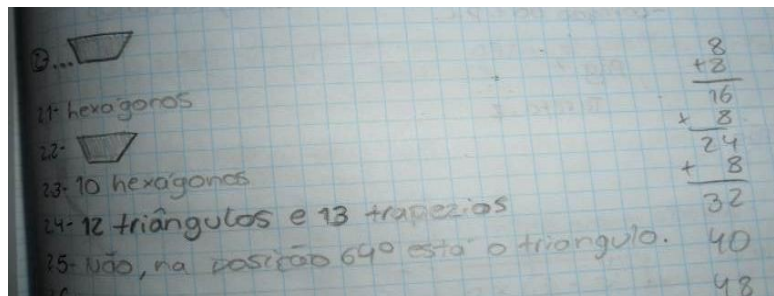 ...
21- hexágonos
22-
23- 10 hexágonos
24- 12 triângulos e 13 trapezios
25- Não, na posição 64º está o triangulo.
8
+8
16
+ 8
24
+ 8
32
40
48